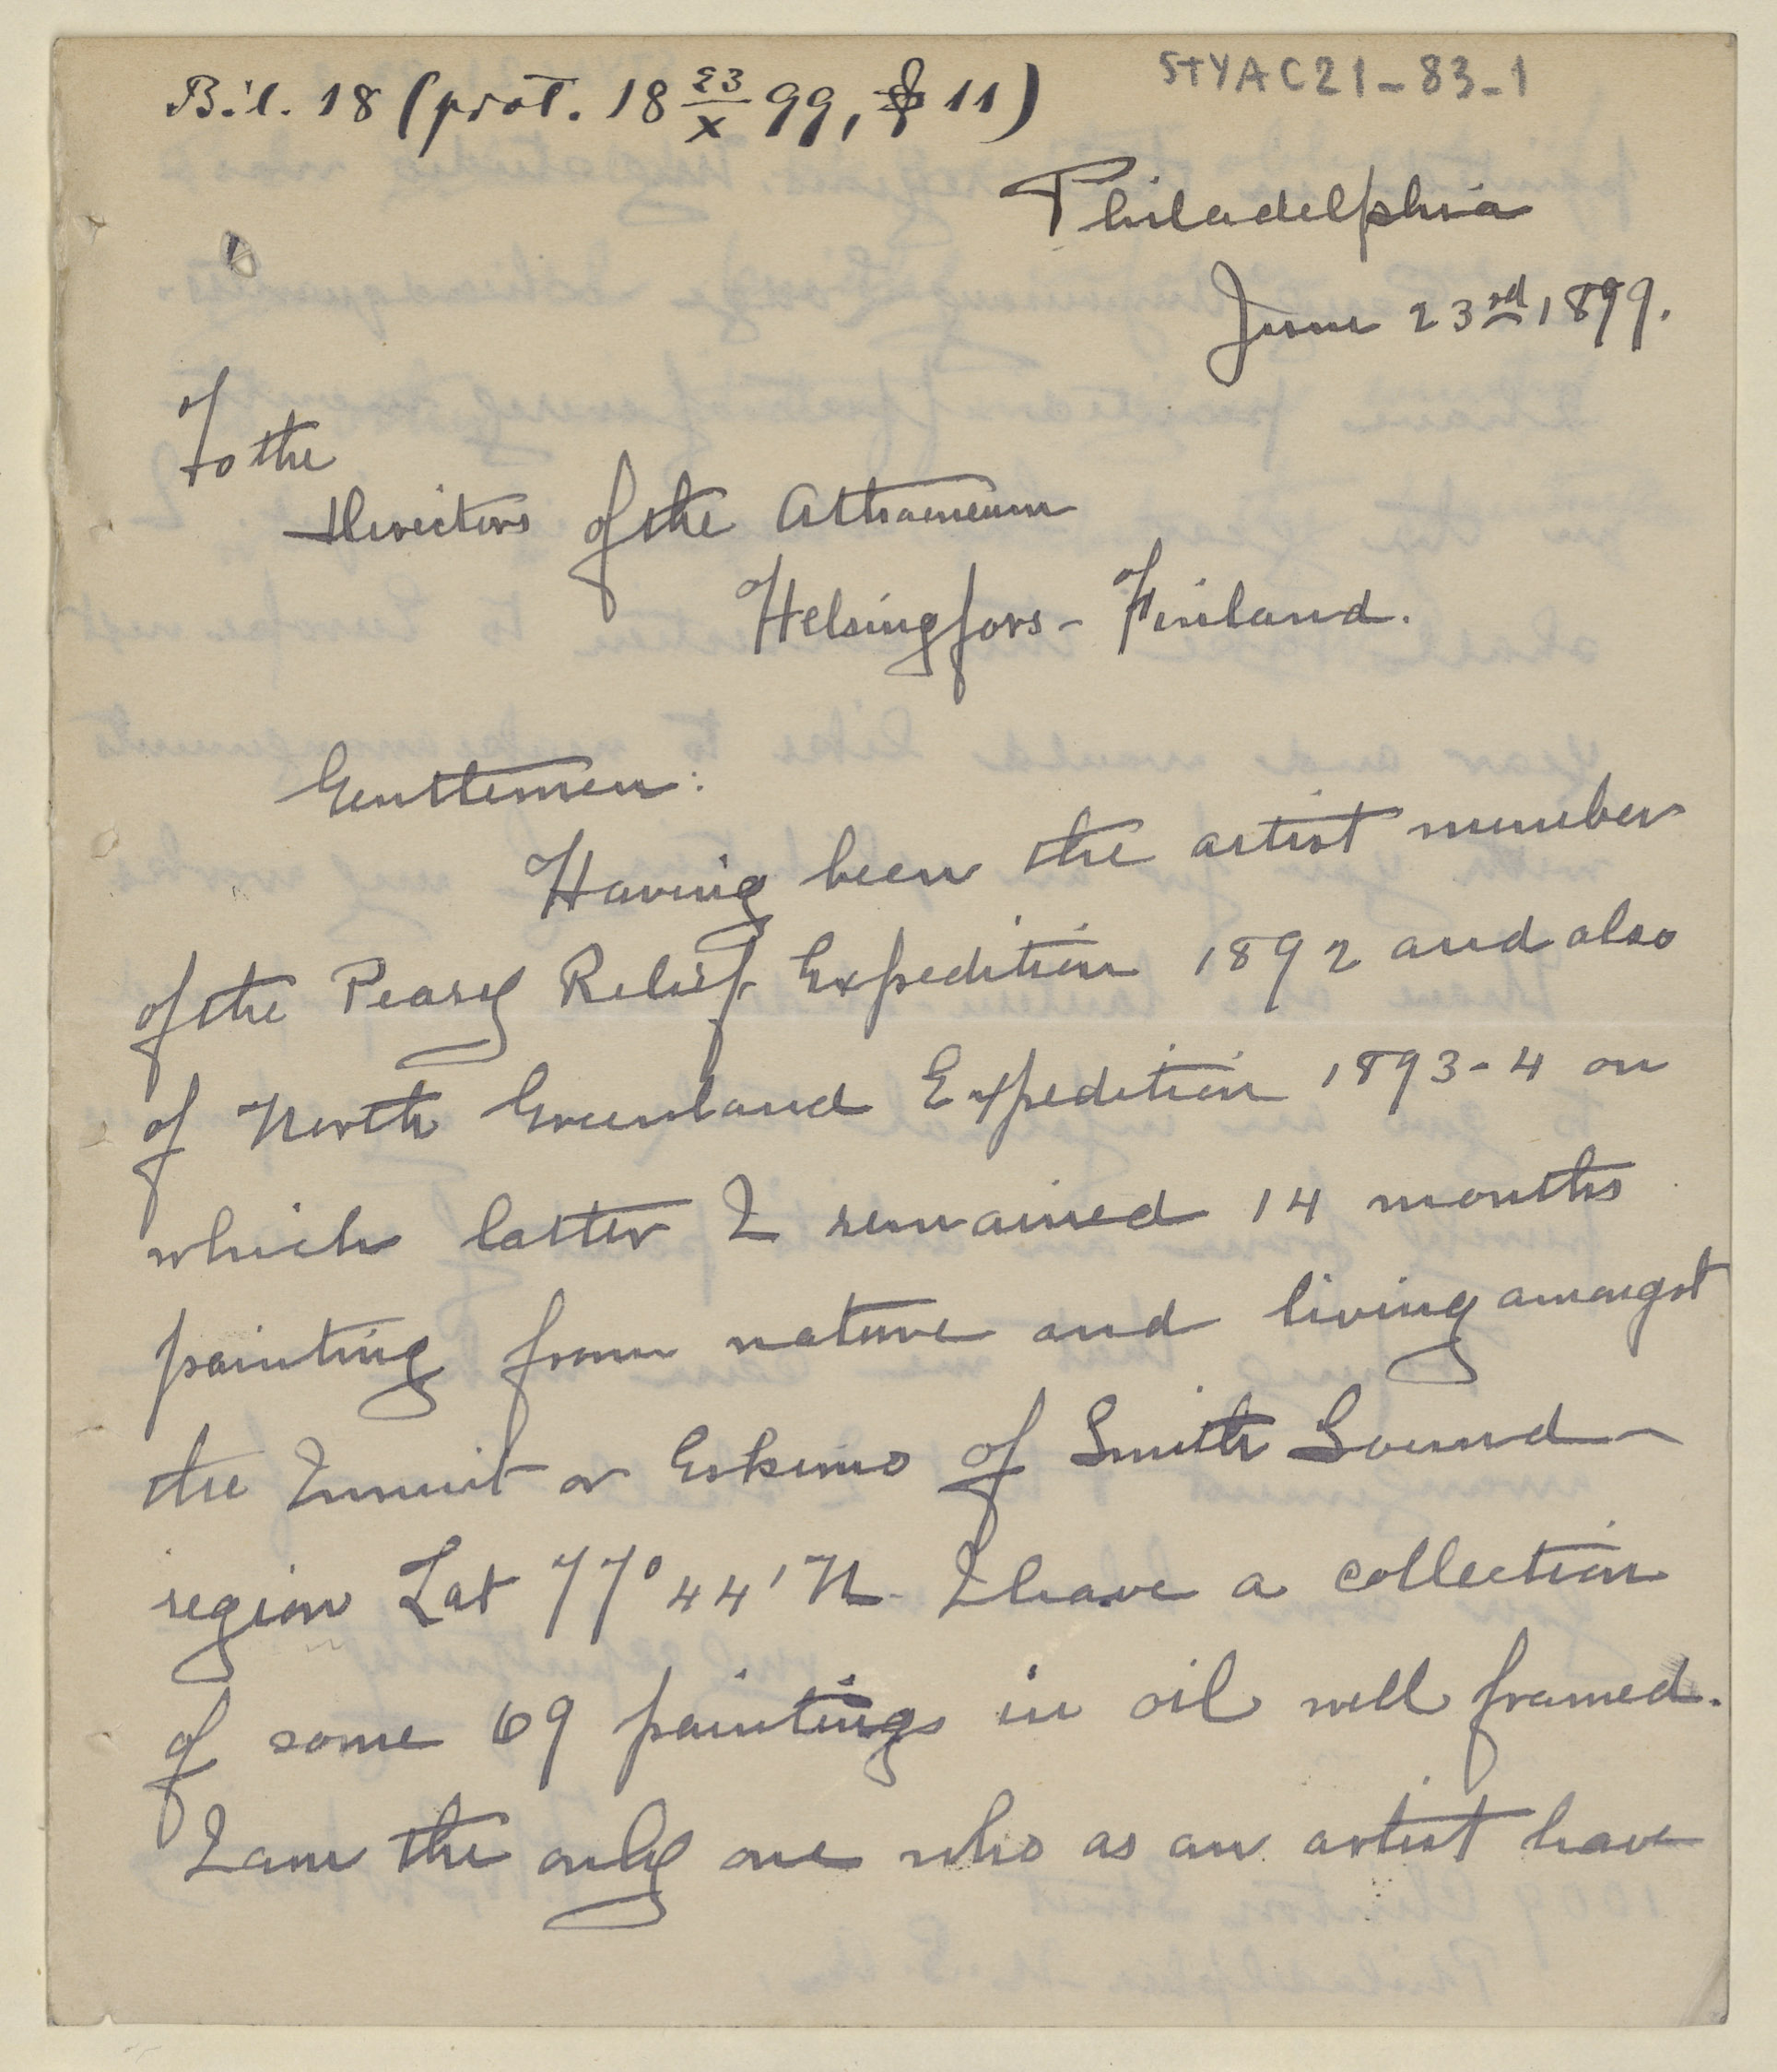 Bil. 18 (prot. 18 23/X 99, § 11)
STYAC21-83-1
Philadelphia
June 23rd, 1899.
To the
Directors of the Athaeneum
Helsingfors - Finland.
Gentlemen:
Having been the artist member
of the Peary Relief Expedition 1892 and also
of North Greenland Expedition 1893-4 on
which latter I remained 14 months
painting from nature and living amongst
the Innuit or Eskimo of Smith Sound
region Lat 77° 44' N. I have a collection
of some 69 paintings in oil well framed.
I am the only one who as an artist have